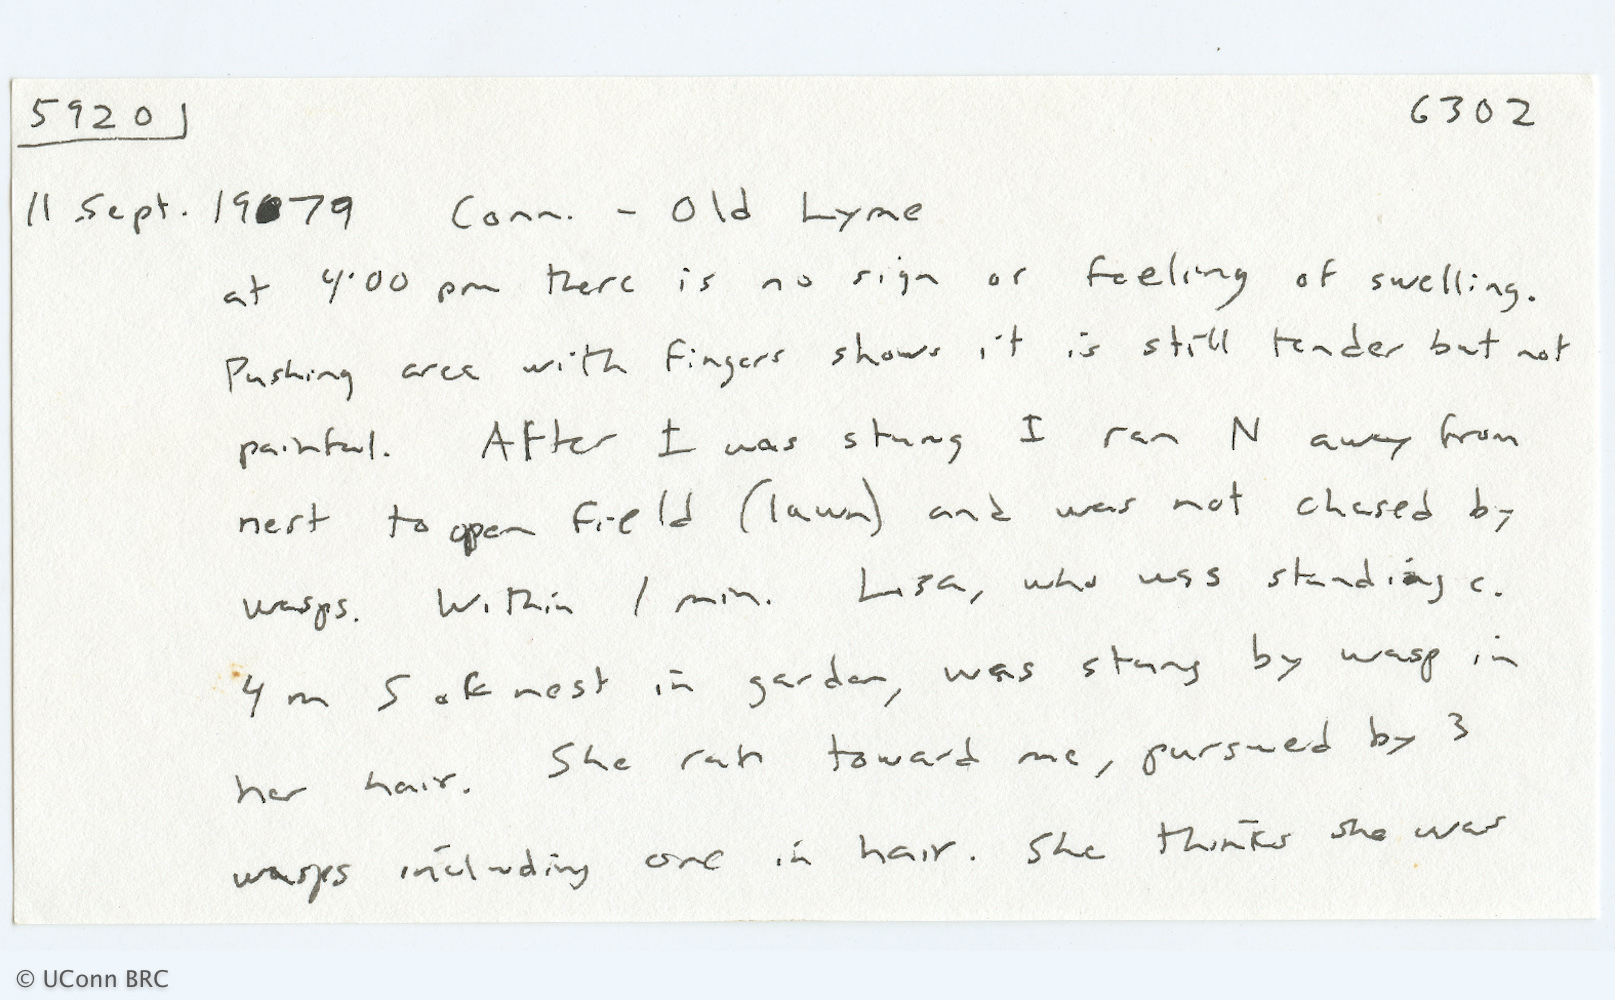 5920 6302
11 Sept. 1979 Conn. - Old Lyme
at 4:00 pm there is no sign or feeling of swelling.
Pushing area with fingers shows it is still tender but not
painful. After I was stung I ran N away from
nest to open field (lawn) and was not chased by
wasps. Within 1 min. Lisa, who was standing c.
4 m S of nest in garden, was stung by wasp in
her hair. She ran toward me, pursued by 3
wasps including one in hair. She thinks she was
© UConn BRC